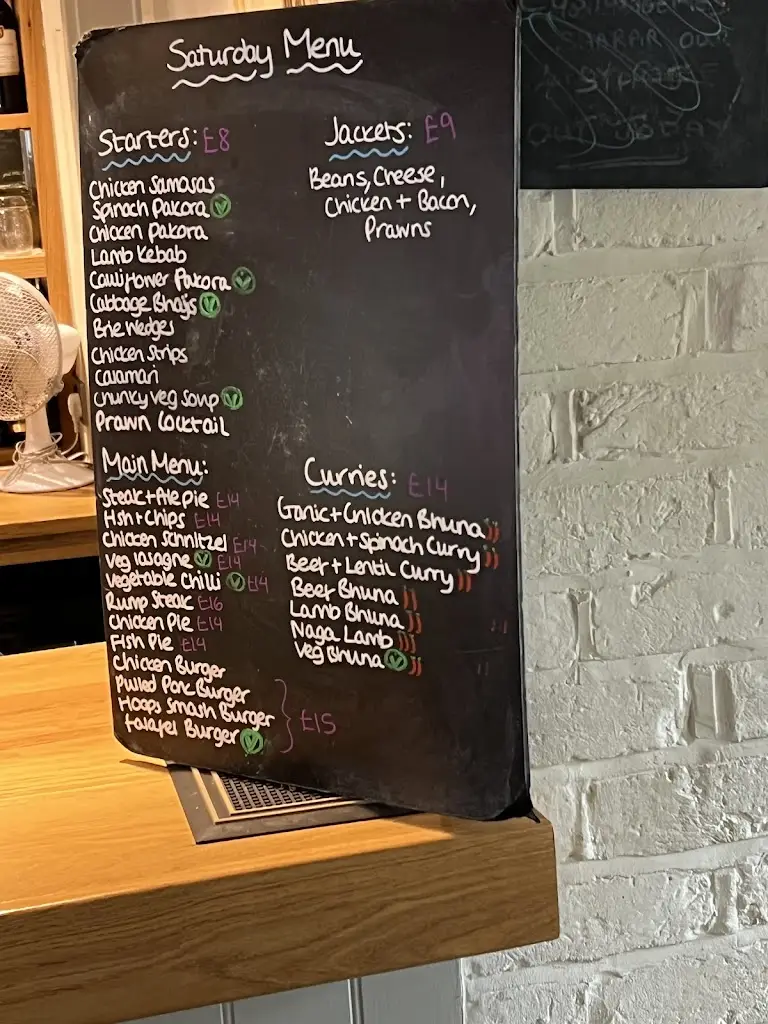 Saturday Menu
Starters: £8
Chicken Samosas
Spinach Pakora V
Chicken Pakora
Lamb Kebab
Cauliflower Pakora V
Cabbage Bhajis V
Brie Wedges
Chicken Strips
Calamari
Chunky Veg Soup V
Prawn Cocktail
Jackets: £9
Beans, Cheese,
Chicken + Bacon,
Prawns
Main Menu:
Steak + Ale Pie £14
Fish + Chips £14
Chicken Schnitzel £14
Veg Lasagne V £14
Vegetable Chilli V £14
Rump Steak £16
Chicken Pie £14
Fish Pie £14
Chicken Burger
Pulled Pork Burger
Hoops Smash Burger
Falafel Burger V
£15
Curries: £14
Garlic + Chicken Bhuna
Chicken + Spinach Curry
Beef + Lentil Curry
Beef Bhuna
Lamb Bhuna
Naga Lamb
Veg Bhuna V